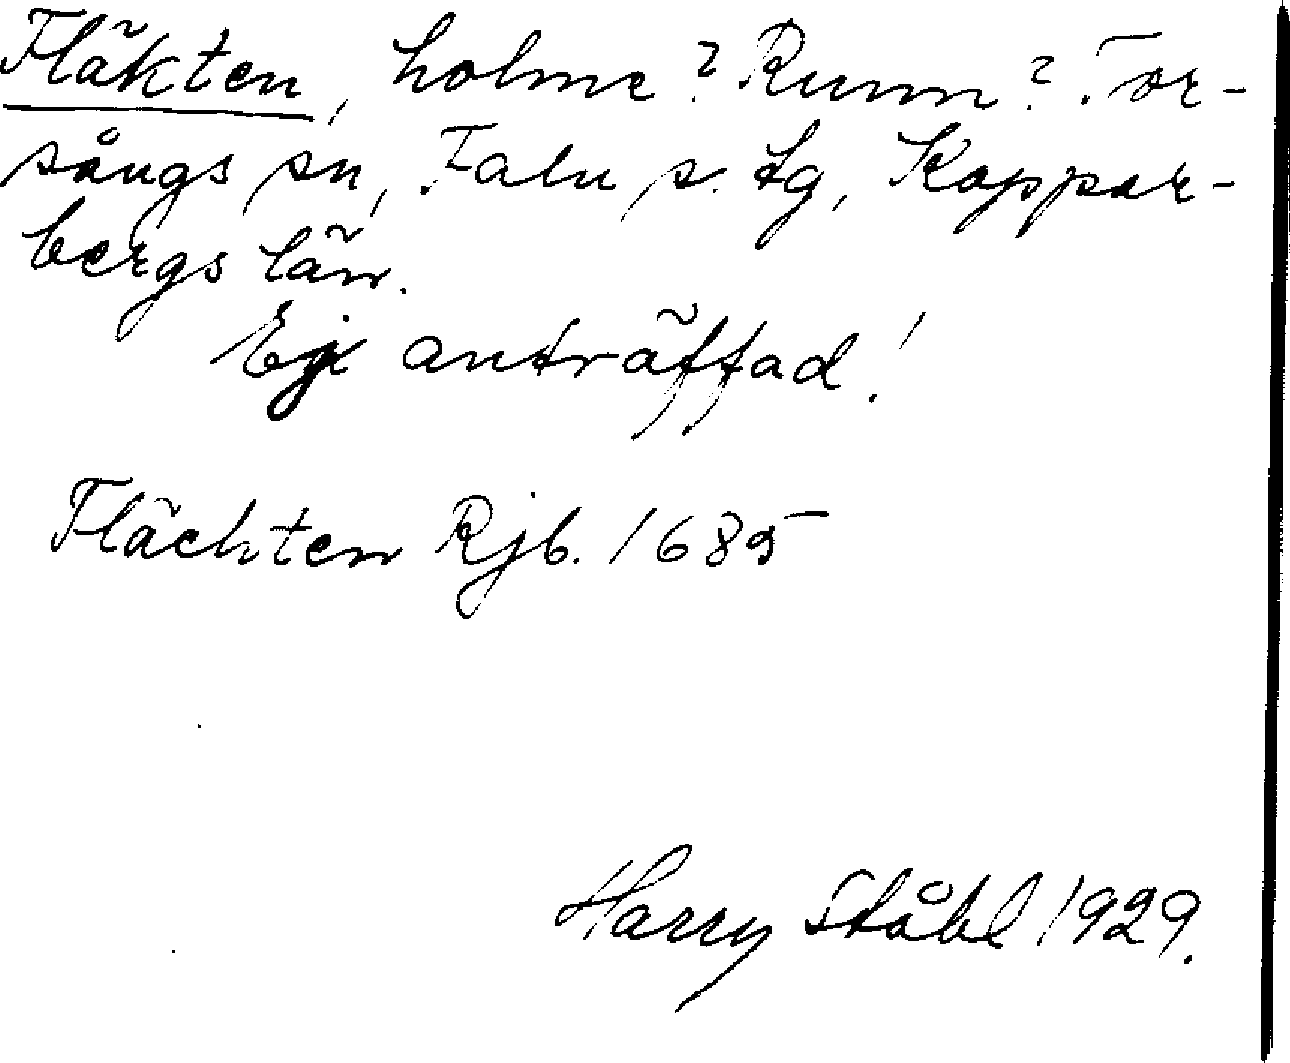 Fläkten, holme? Runn? Tor-
sångs sn, Falu s. tg, Koppar-
bergs län.
Ej anträffad!
Flächten Rjb. 1685
Harry Ståhl 1929.